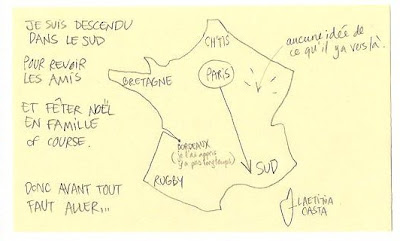 JE SUIS DESCENDU
DANS LE SUD
POUR REVOIR
LES AMIS
ET FÊTER NOËL
EN FAMILLE
OF COURSE.
DONC AVANT TOUT
FAUT ALLER...
CH'TIS
BRETAGNE
PARIS
aucune idée de
ce qu'il y a vers là.
BORDEAUX
(je l'ai appris
y'a pas longtemps)
RUGBY
SUD
LAETITIA
CASTA